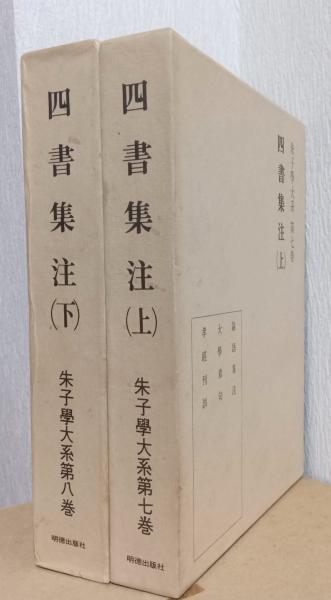 四書集注（下）
朱子學大系第八巻
明徳出版社
四書集注（上）
朱子學大系第七巻
明徳出版社
朱子學大系 第七巻
四書集注（上）
論語集注
大學章句
孝經刊誤